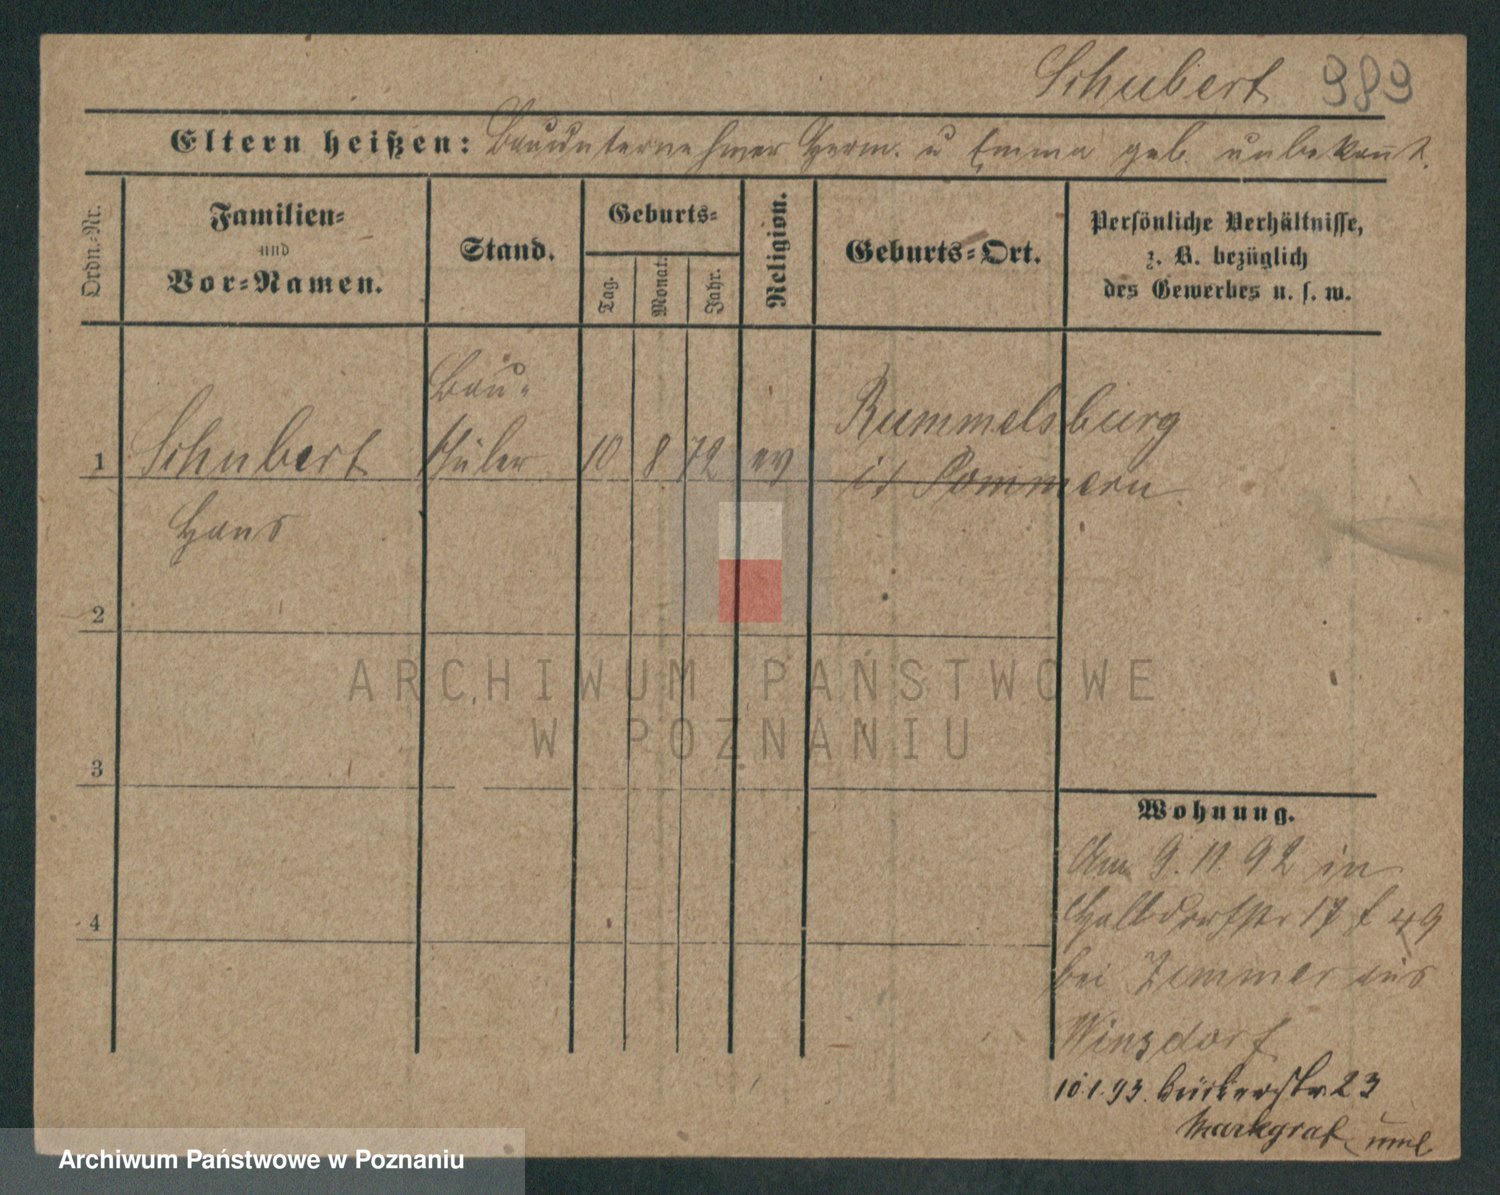 Schubert 989
Eltern heißen: Bauunternehmer Herm. u Emma geb. unbekannt.
Ordn.-Nr.
Familien-
und
Vor-Namen.
Stand.
Geburts-
Tag.
Monat.
Jahr.
Religion.
Geburts-Ort.
Persönliche Verhältnisse,
z. B. bezüglich
des Gewerbes u. s. w.
1 Schubert
Hans
Bau-
schüler
10 8 72 ev
Rummelsburg
in Pommern
2
3
4
Wohnung.
Am 9. 11. 92 in
Halbdorfstr 17 49
bei Zimmer aus
Winzdorf
10.1.93. Bäckerstr. 23
Markgraf
ARCHIWUM PAŃSTWOWE
W POZNANIU
Archiwum Państwowe w Poznaniu